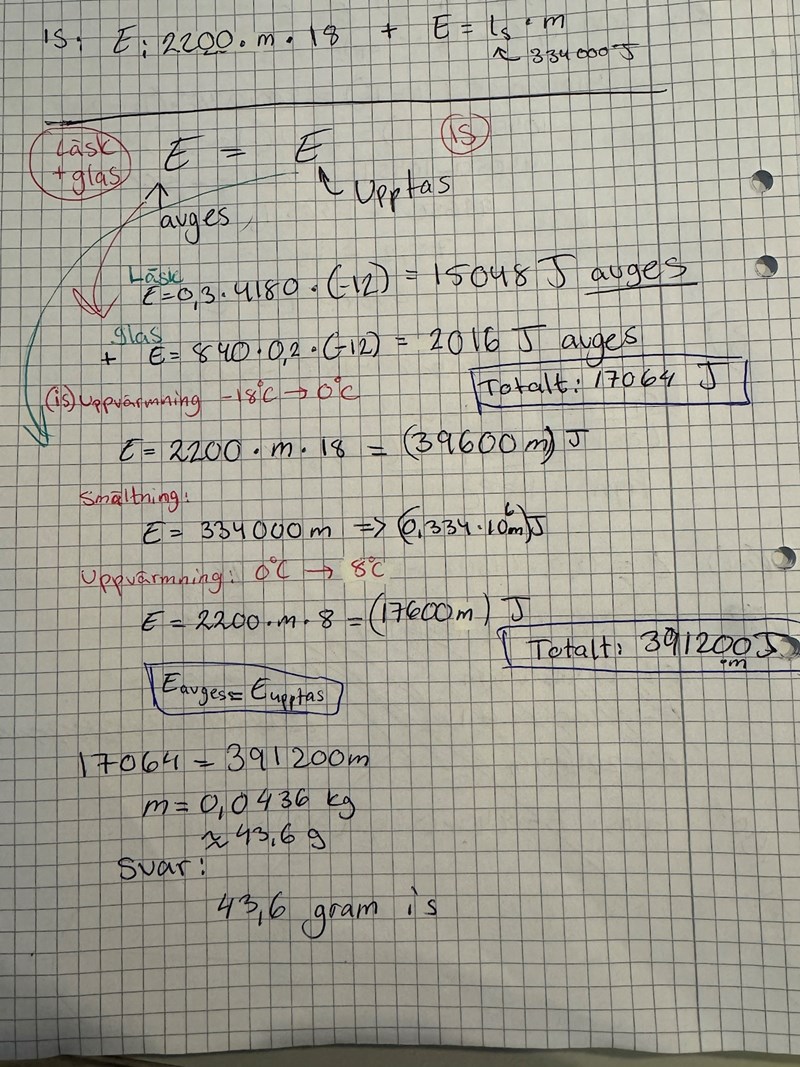 IS: E: 2200 · m · 18 + E = ls · m
334000 J
Läsk + glas E = E IS
avges Upptas
Läsk
E = 0,3 · 4180 · (-12) = 15048 J avges
glas
+ E = 840 · 0,2 · (-12) = 2016 J avges
Totalt: 17064 J
(is) Uppvärmning -18°C → 0°C
E = 2200 · m · 18 = (39600 m) J
Smältning:
E = 334000 m => (0,334 · 10⁶ m) J
Uppvärmning: 0°C → 8°C
E = 2200 · m · 8 = (17600 m) J
Totalt: 391200 J · m
Eavges = Eupptas
17064 = 391200m
m = 0,0436 kg
≈ 43,6 g
Svar:
43,6 gram is